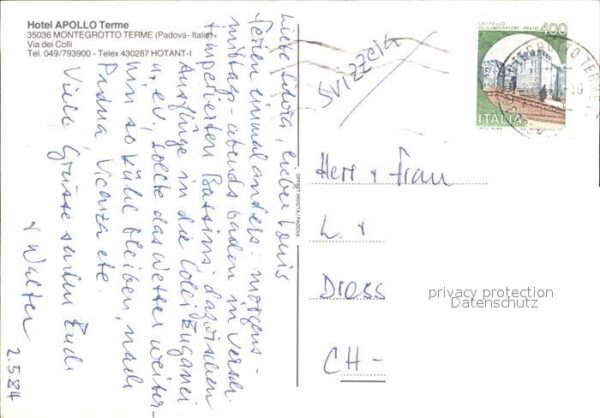 Hotel APOLLO Terme
35036 MONTEGROTTO TERME (Padova - Italia)
Via dei Colli
Tel. 049/793900 - Telex 430287 HOTANT-I
Liebe Silvia, lieber Louis
Ferien einmal anders: morgens -
mittags - abends baden in versch.
temperierten Bassins, dazwischen
Ausflüge in die Colli Euganei
u. ev., sollte das Wetter weiter-
hin so kühl bleiben, nach
Padua, Vicenza etc.
Viele Grüsse senden Rudi
+ Walter
2.5.84
OFFSET INVICTA PADOVA
Svizzera
CASTELLO
DELL'IMPERATORE - PRATO
400
ITALIA
MONTEGROTTO TERME
Herr + Frau
L. +
Dross
CH-
privacy protection
Datenschutz